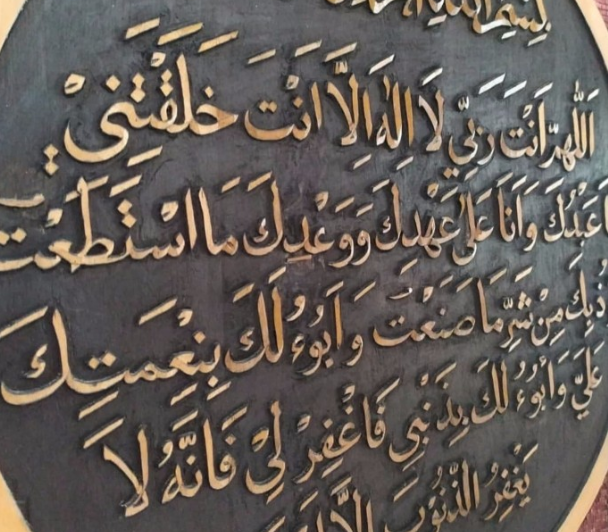 بِسْمِ اللهِ
اَللّٰهُمَّ اَنْتَ رَبِّيْ لَا اِلٰهَ اِلَّا اَنْتَ خَلَقْتَنِيْ
عَبْدُكَ وَاَنَا عَلٰى عَهْدِكَ وَوَعْدِكَ مَا اسْتَطَعْتُ
بِكَ مِنْ شَرِّ مَا صَنَعْتُ وَاَبُوْءُ لَكَ بِنِعْمَتِكَ
عَلَيَّ وَاَبُوْءُ لَكَ بِذَنْبِيْ فَاغْفِرْ لِيْ فَاِنَّهُ لَا
يَغْفِرُ الذُّنُوْبَ اِلَّا